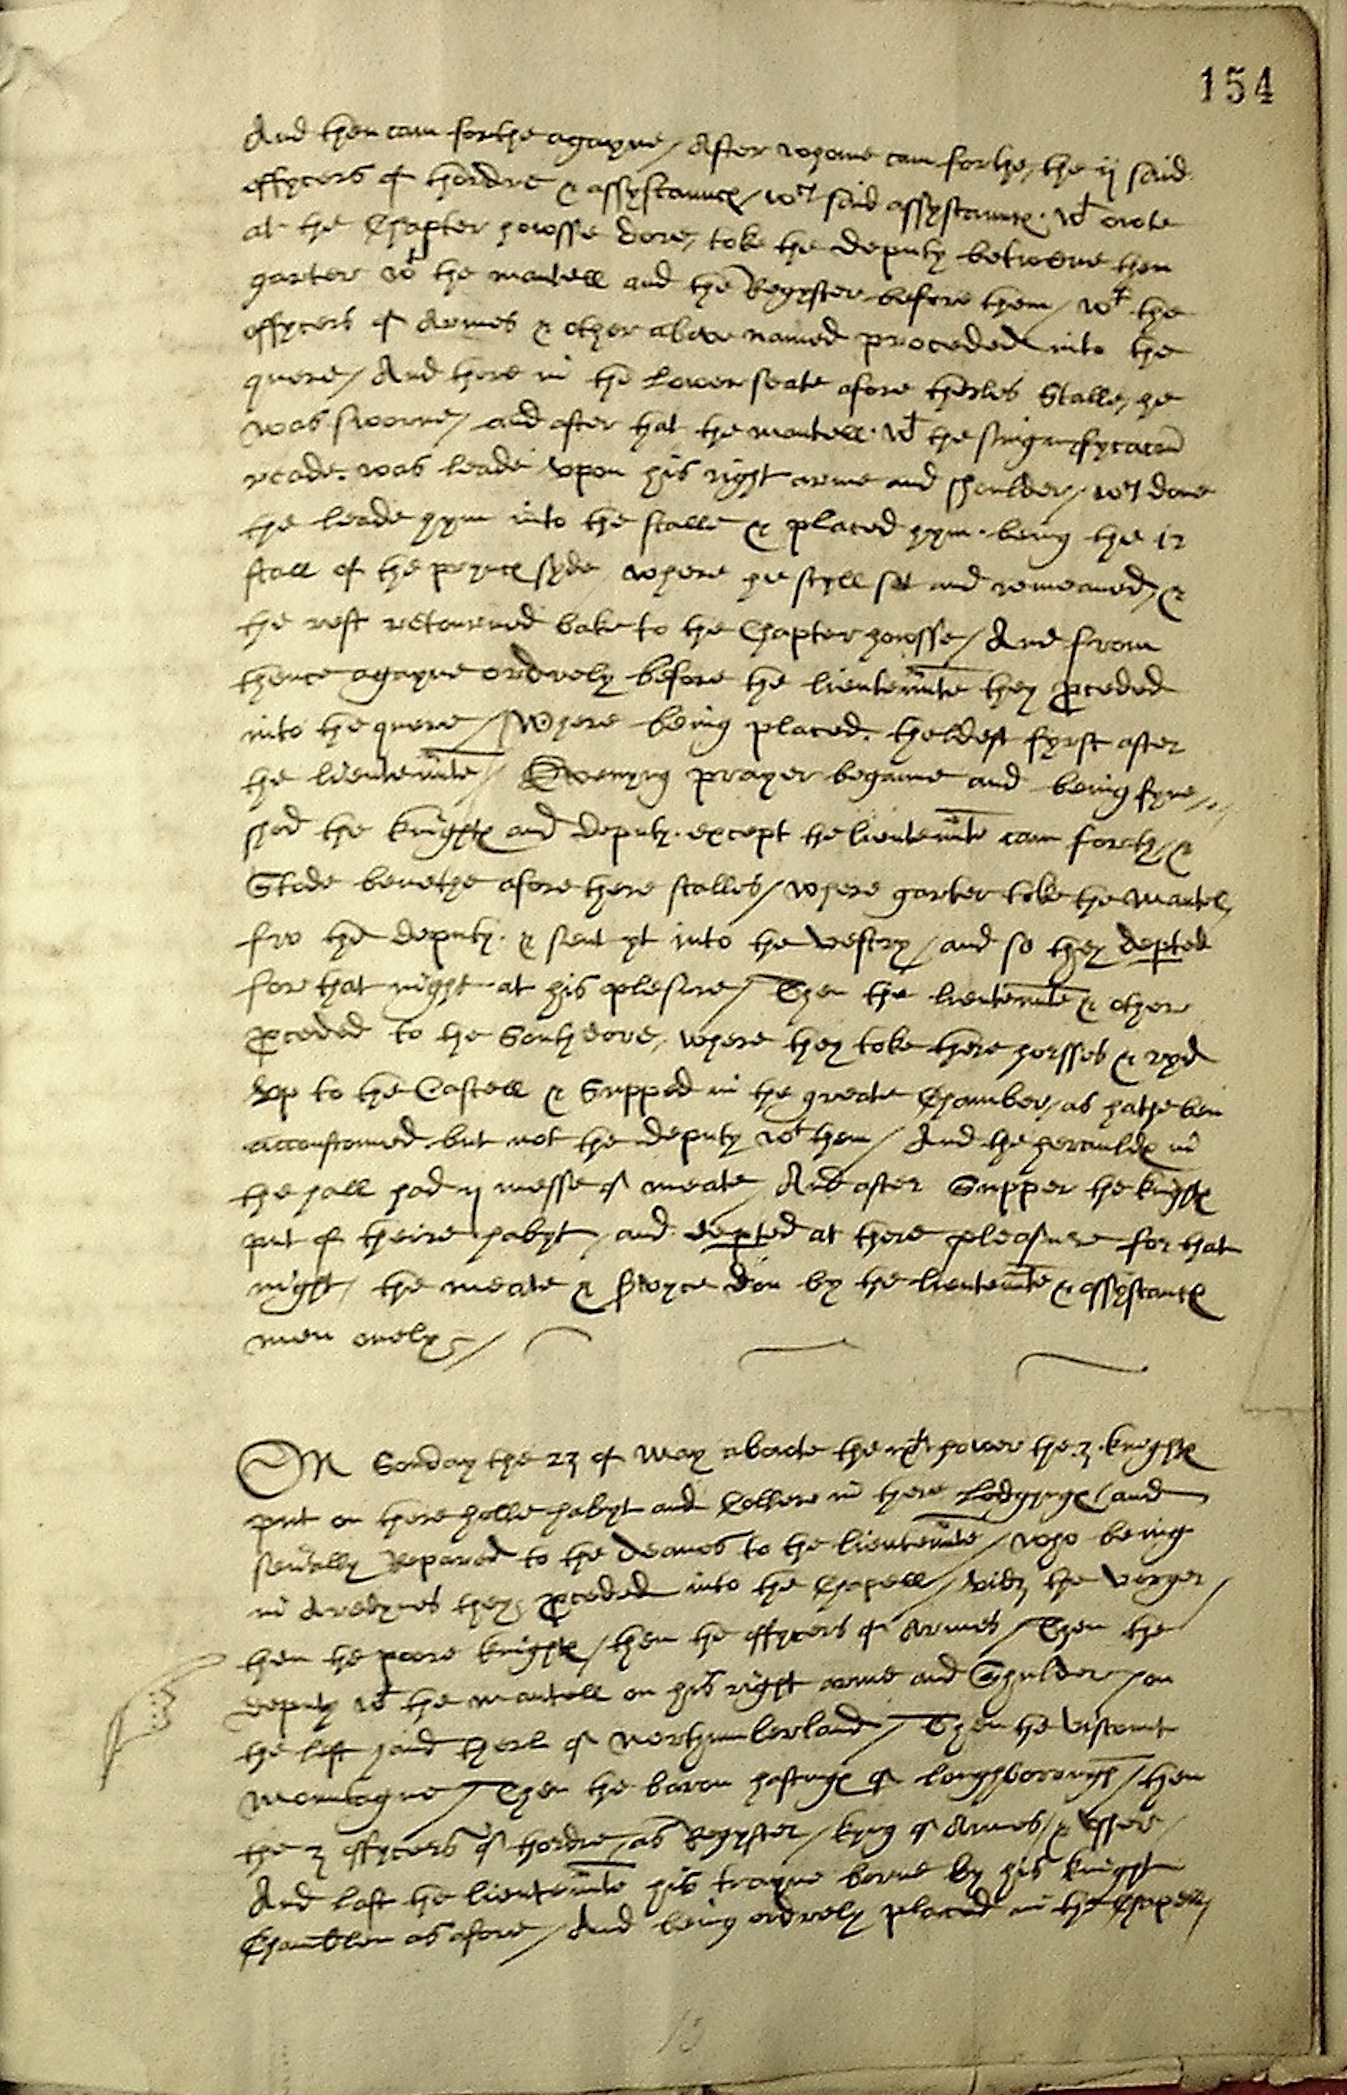 154
And then cam forthe agayne / After whome cam forthe, the ij said
offycers of thordre & assystauntꝭ / wch said assystauntꝭ. wt owte
at the Chapter howsse dore, toke the deputy betwene then
garter wt the mantell and the Regyster before them / wt the
offycers of Armes & other above named proceded into the
quere / And there in the Lower seate afore therles Stalle, he
was sworne / and after that the mantell. wt the
reade. was leade vpon his right arme and shoulder / wch done
the leade hym into the stalle & placed hym. being the 12
stall of the pryncꝭ syde, where he styll set and remeaned, &
the rest retourned bake to the Chapter howsse / And from
thence agayne orderely before the lieutennte they ꝓceded
into the quere / Where being placed. theldest fyrst after
the lieutennte / Evenyng prayer begaune and being fyne
shed the knightꝭ and deputy. except the lieutennte cam forth, &
Stode benethe afore there stalles / where garter toke the mantell,
fro the deputy. & sent yt into the vestry / and so they depted
for that night at his plesure / Then the lieutennte & other
ꝓceded to the South dore, where they toke there horsses & ryd
vp to the Castell & Supped in the greate Chamber, as hathe ben
accoustomed but not the deputy wt them / And the herauldꝭ in
the hall had ij messe of meate / And after Supper the knightꝭ
put of theire habyt, and depted at there pleasure for that
night, the meate & don by the lieutennte & assystantꝭ
men onely /
ON Sonday the 23 of May aboute the ixth hower the 3. knightꝭ
put on there holle habyt and Collers in there Lodgyngꝭ / and
seually Repared to the deanes to the lieutennte / who being
in aredynes they ꝓceded into the Chapell / vidz the verger /
then the poore knightꝭ / then the offycers of Armes / Then the
deputy wt the mantell on his right arme and Shulder, on
the left hand therl of Northumberland / Then the viscount
Mountagne / Then the baron hastingꝭ of Loughborough / then
the 3 offycers of thordre, as Regyster / kyng of Armes, & vssher /
And last the lieutennte his trayne borne by his knight
Chamblen as afore / And being orderely placed in the Chapell /